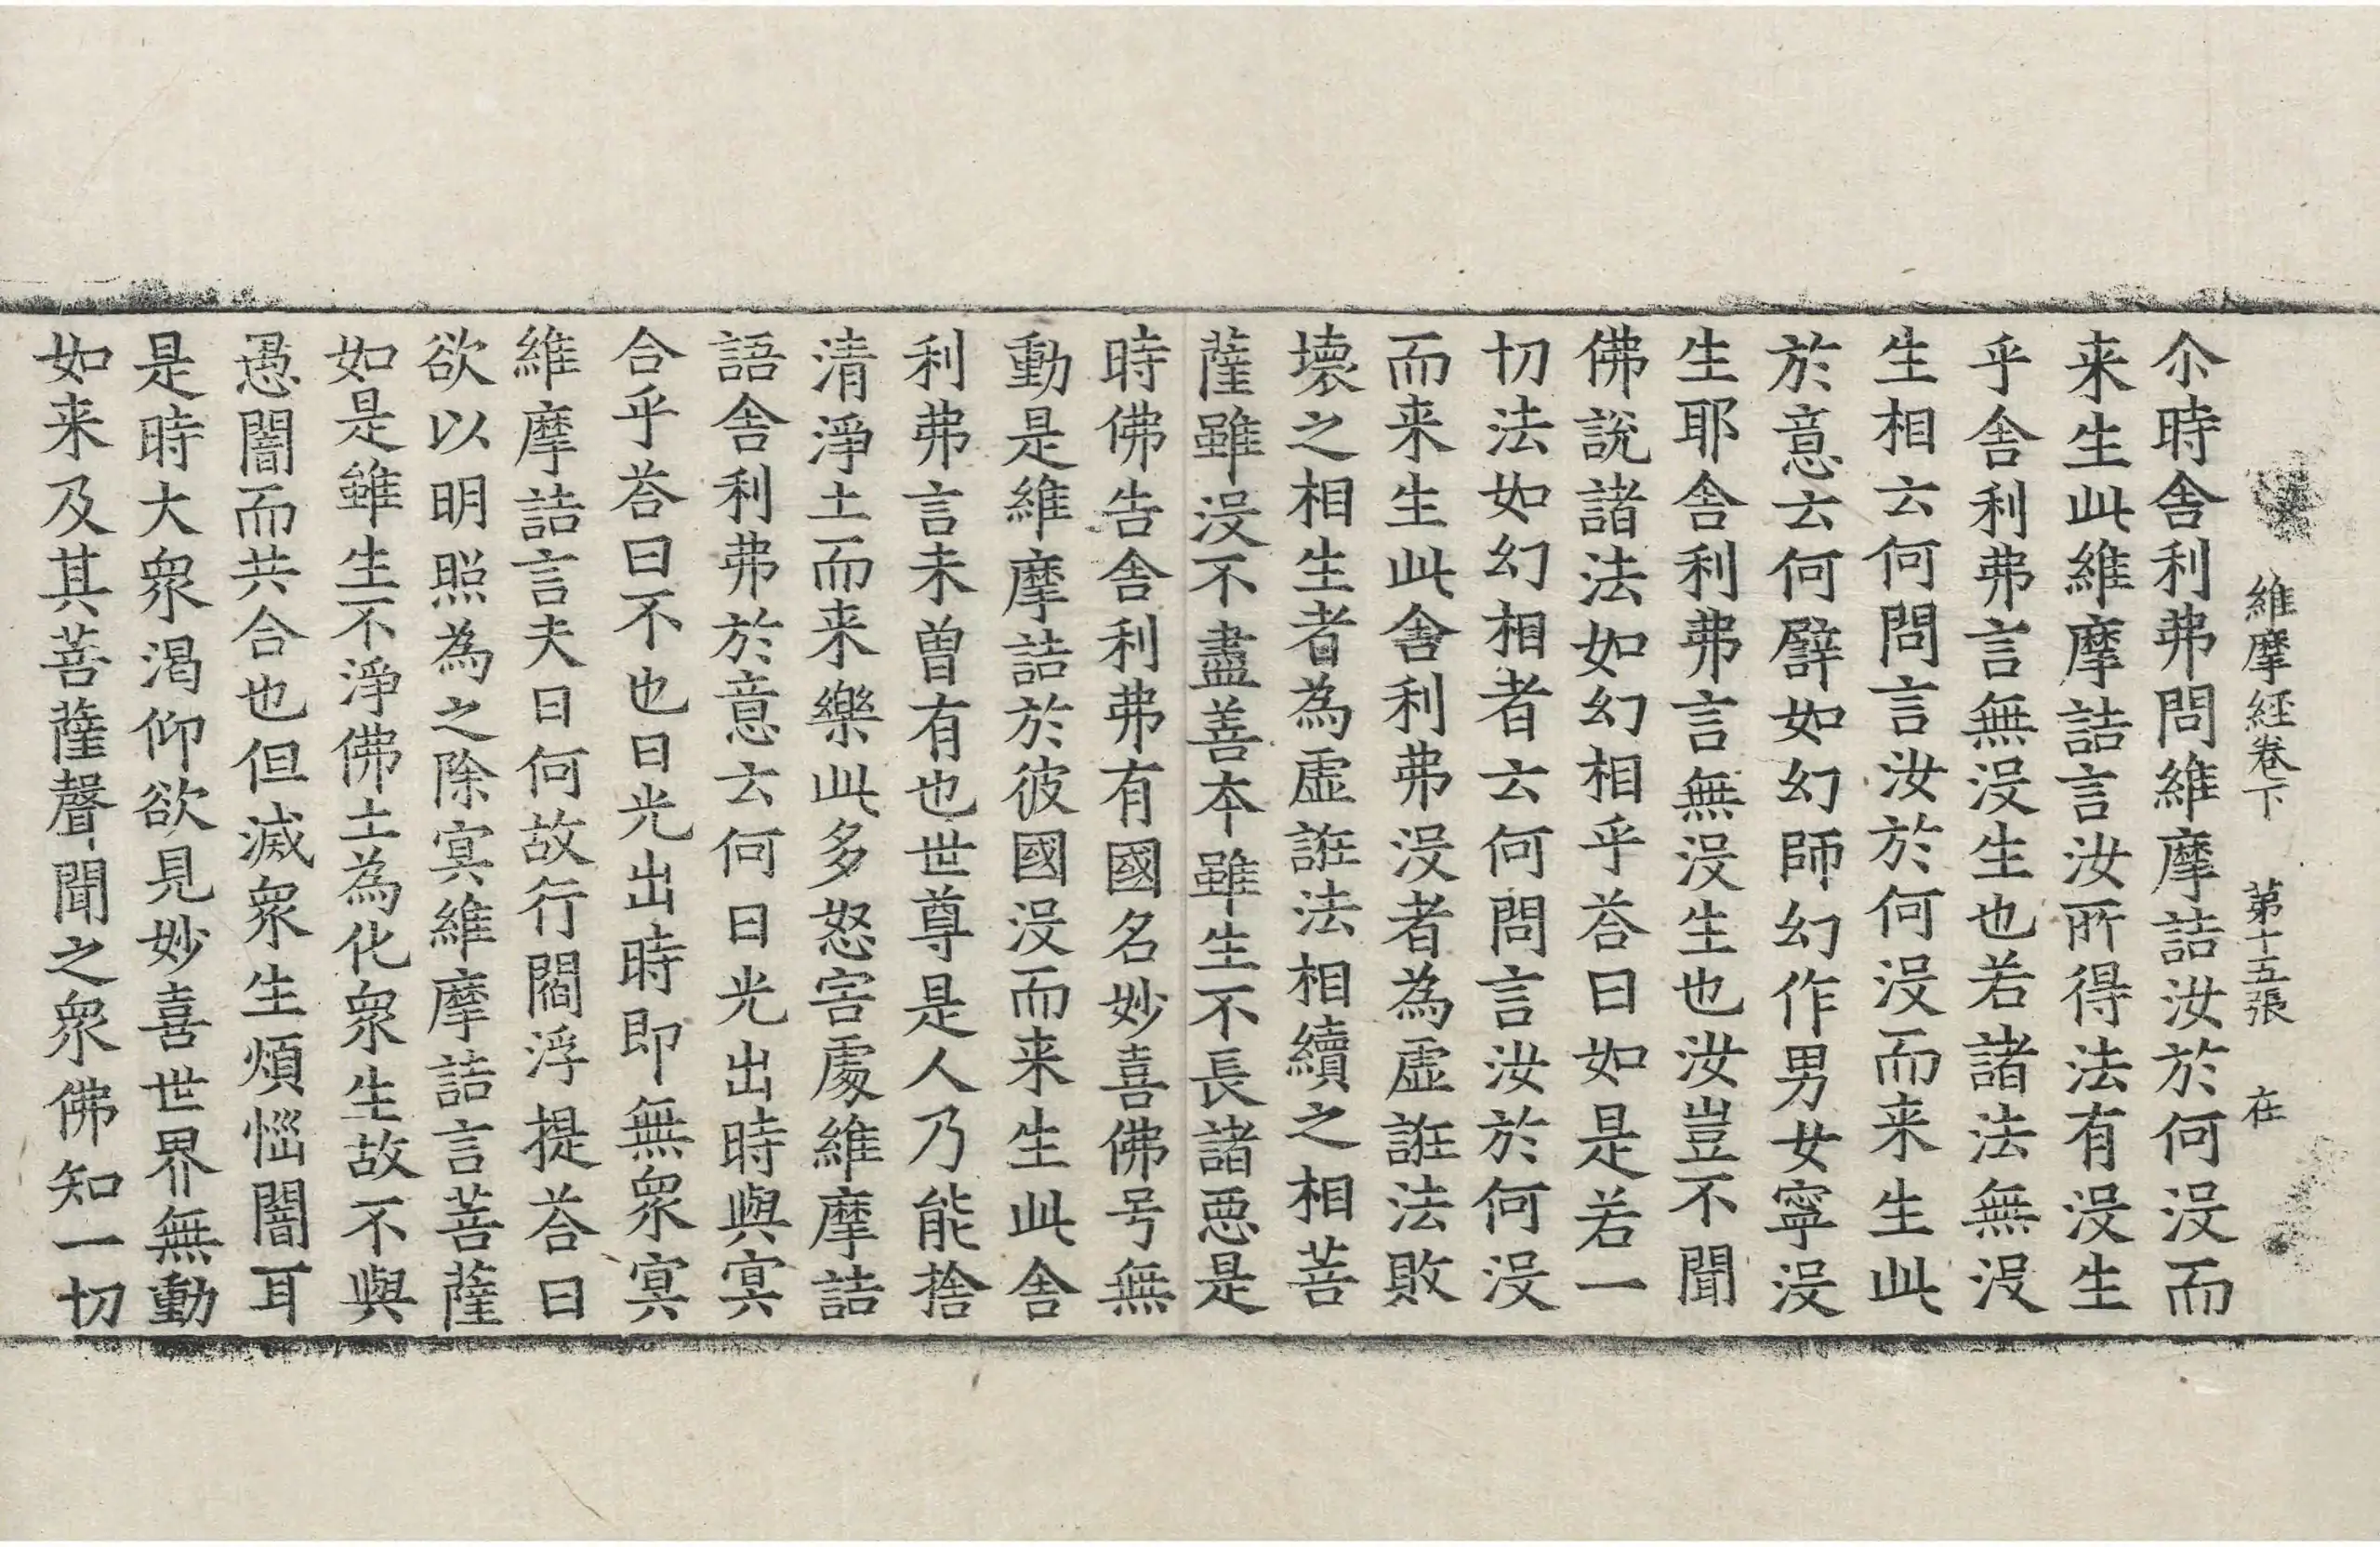 維摩經卷下 第十五張 在
尒時舎利弗問維摩詰汝於何没而
来生此維摩詰言汝所得法有没生
乎舎利弗言無没生也若諸法無没
生相云何問言汝於何没而来生此
於意云何譬如幻師幻作男女寧没
生耶舎利弗言無没生也汝豈不聞
佛說諸法如幻相乎荅曰如是若一
切法如幻相者云何問言汝於何没
而来生此舎利弗没者為虛誑法敗
壞之相生者為虛誑法相續之相菩
薩雖没不盡善本雖生不長諸惡是
時佛告舎利弗有國名妙喜佛号無
動是維摩詰於彼國没而来生此舎
利弗言未曽有也世尊是人乃能捨
清淨土而来樂此多怒害處維摩詰
語舎利弗於意云何日光出時與冥
合乎荅曰不也日光出時即無衆冥
維摩詰言夫日何故行閻浮提荅曰
欲以明照為之除冥維摩詰言菩薩
如是雖生不淨佛土為化衆生故不與
愚闇而共合也但滅衆生煩惱闇耳
是時大衆渴仰欲見妙喜世界無動
如来及其菩薩聲聞之衆佛知一切